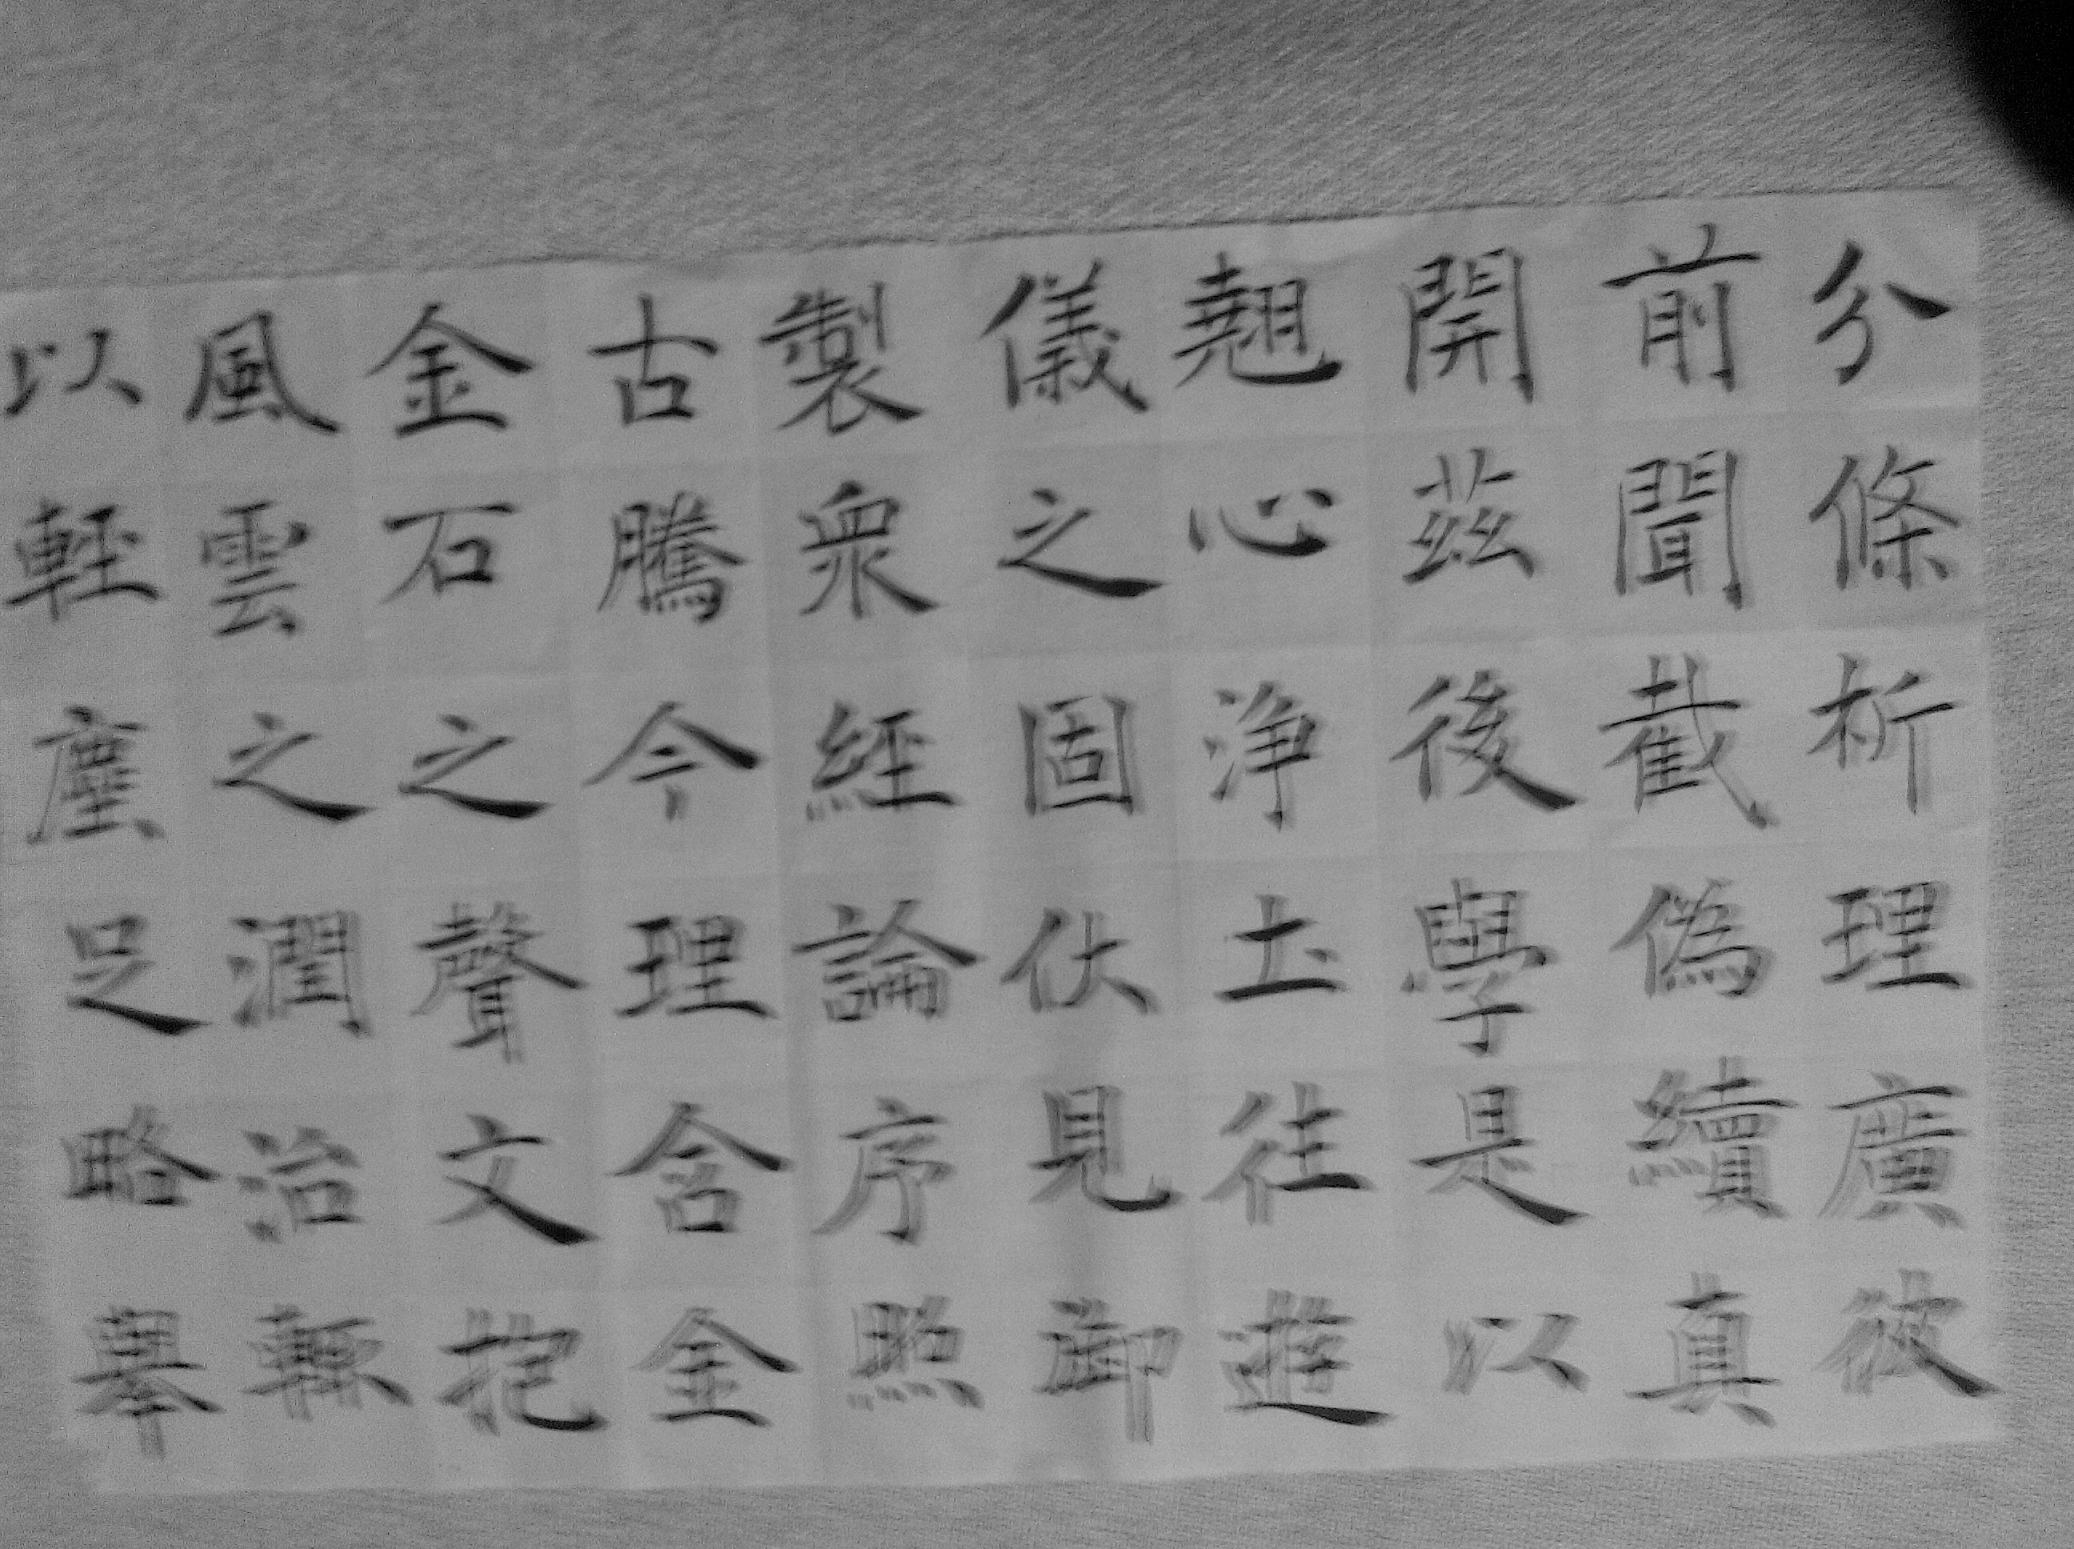 分條析理廣彼
前聞截偽續真
開茲後學是以
翹心淨土往遊
儀之固伏見御
製眾經論序照
古騰今理含金
金石之聲文抱
風雲之潤治輒
以輕塵足略舉